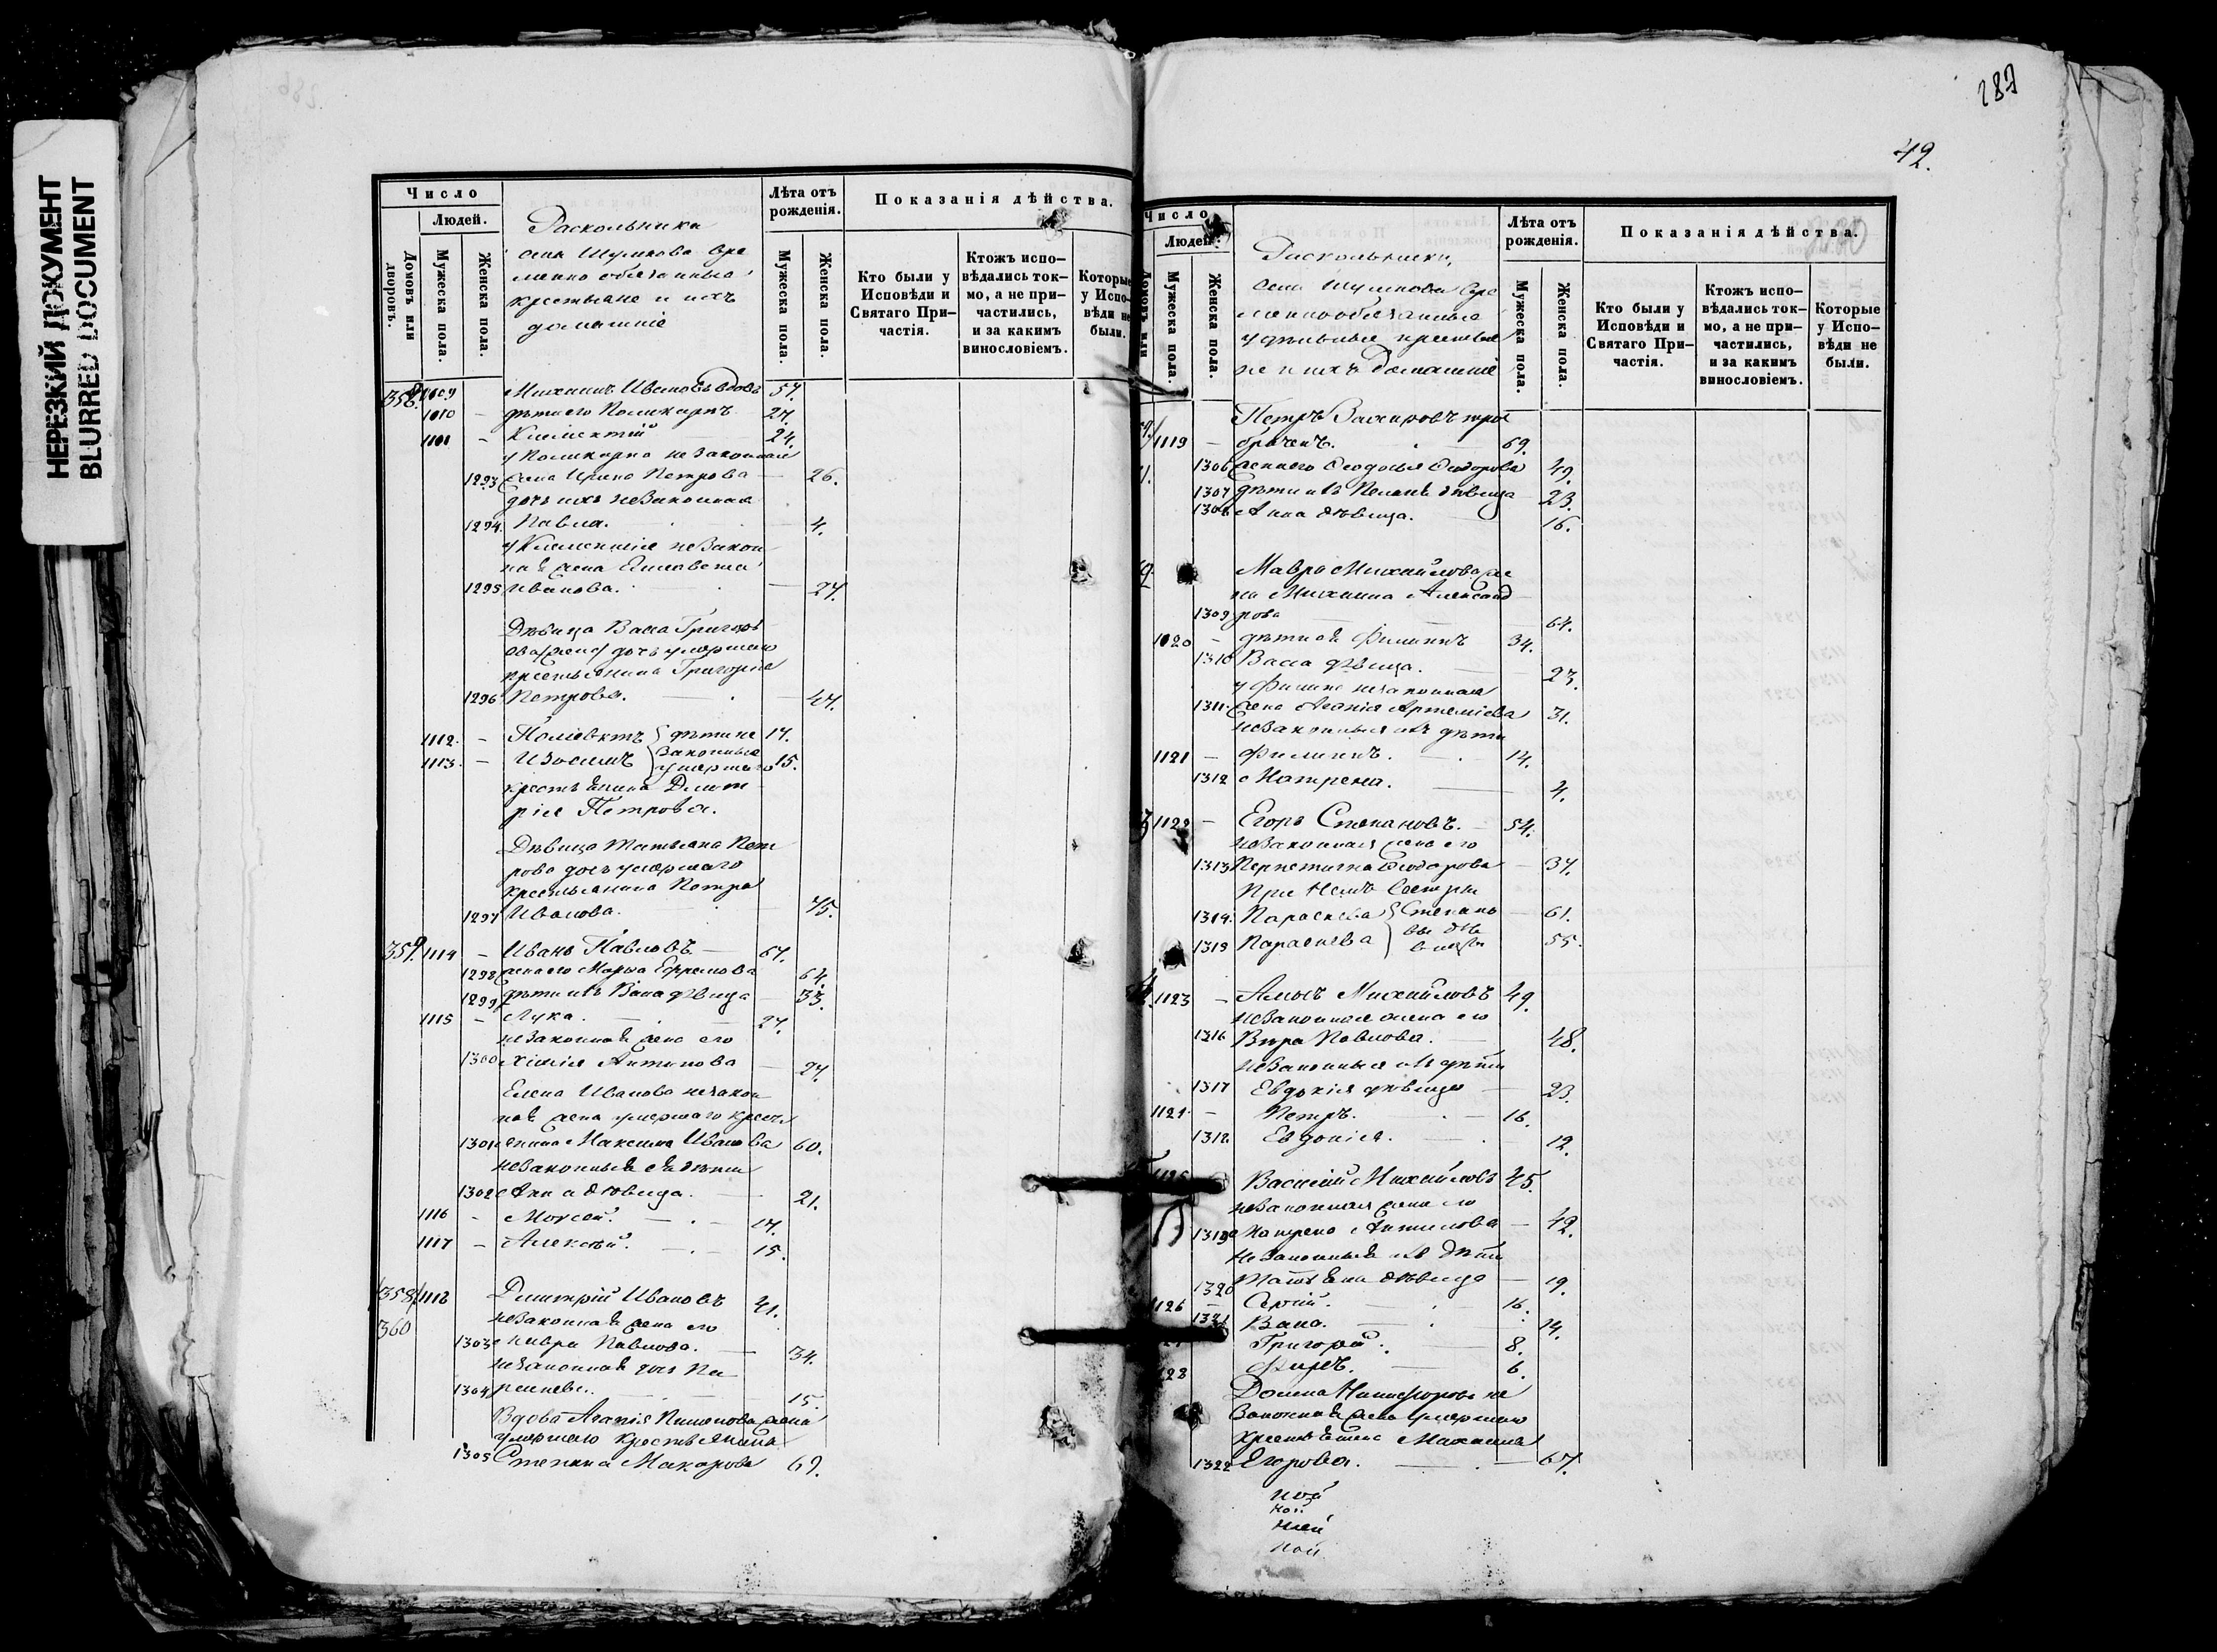 НЕРЕЗКИЙ ДОКУМЕНТ
BLURRED DOCUMENT
Число
Людей.
Домовъ или дворовъ.
Мужеска пола.
Женска пола.
Раскольники
села Шумкова вре
менно обязанные
крестьяне и ихъ
домашніе
Лѣта отъ рожденія.
Мужеска пола.
Женска пола.
Показанія дѣйства.
Кто были у Исповѣди и Святаго Причастія.
Ктожъ исповѣдались токмо, а не причастились, и за какимъ винословіемъ.
Которые у Исповѣди не были.
Михаилъ Ивановъ вдовъ 57.
1110 – дѣти его Поликарпъ 27.
– Климентій 24.
у Поликарпа незаконная
1293 жена Ирина Петрова – 26.
дочь ихъ незаконная
1294. Павла. – 4.
у Климентія незакон
ная жена Елисавета
1295 Иванова. – 27.
Дѣвица Васса Григорь
ева дочь умершаго
крестьянина Григорія
1296 Петрова. – 47.
1112. – Поліевктъ дѣти не 17.
1113. – Изосимъ законные умершаго 15.
крестьянина Димит
рія Петрова.
Дѣвица Татьяна Пет
рова дочь умершаго
крестьянина Петра
1297 Иванова. – 75.
359. 1114 – Иванъ Павловъ – 67.
1298 жена его Марѳа Ефремова 64.
1299 дѣти ихъ Васса дѣвица 33.
1115 – Лука. – 27.
незаконная жена его
1300 Хіонія Антипова – 27.
Елена Иванова незакон
ная жена умершаго кресть
1301 янина Максима Иванова 60.
незаконныя ея дѣти
1302 Анна дѣвица. – 21.
1116 – Моисей. – 17.
1117 – Алексѣй. – 15.
358 1118 Димитрій Ивановъ 41.
360 незаконная жена его
1303 Мавра Павлова. – 34.
незаконная дочь Па
1304 раскева. – 15.
Вдова Агапія Пименова жена
умершаго крестьянина
1305 Степана Макарова 69.
287
42.
Число
Людей.
Домовъ или
Мужеска пола.
Женска пола.
Раскольники,
села Шумкова вре
менно обязанные
удѣльные крестья
не и ихъ домашніе
Лѣта отъ рожденія.
Мужеска пола.
Женска пола.
Показанія дѣйства.
Кто были у Исповѣди и Святаго Причастія.
Ктожъ исповѣдались токмо, а не причастились, и за какимъ винословіемъ.
Которые у Исповѣди не были.
Петръ Захаровъ трое
1119 – браченъ. 69.
1306 жена его Ѳеодосья Ѳеодорова 49.
1307 дѣти ихъ дѣвица 23.
1308 Анна дѣвица. – 16.
Мавра Михайлова же
на Михаила Александ
1309 рова – 64.
1120 – дѣти ея Филиппъ 34.
1310 Васса дѣвица. – 23.
у Филиппа незаконная
1311. жена Агапія Артеміева 31.
незаконныя ихъ дѣти
1121 – Филиппъ. – 14.
1312 Матрена. – 4.
1122 – Егоръ Степановъ. – 54.
незаконная жена его
1313 Перпетинья Ѳеодорова – 37.
При немъ Сестры
1314. Параскева Степано – 61.
1315 Параскева вы дѣвицы 55.
1123 – Амосъ Михайловъ 49.
незаконная жена его
1316 Вѣра Павлова. – 48.
незаконныя ихъ дѣти
1317 Евдокія дѣвица – 23.
1124. – Петръ. – 16.
1318 Евдокія. – 12.
1125 Василій Михайловъ 45.
незаконная жена его
1319 Матрена Антипова – 42.
Незаконныя ихъ дѣти
1320 Татьяна дѣвица – 19.
1126 – Сергій. 16.
1321 Васса. – 14.
Григорій. – 8.
1128 Фирсъ. – 6.
Домна Никифорова не
законная жена умершаго
крестьянина Михаила
1322 Егорова. – 67.
ной
ной
ней
ной